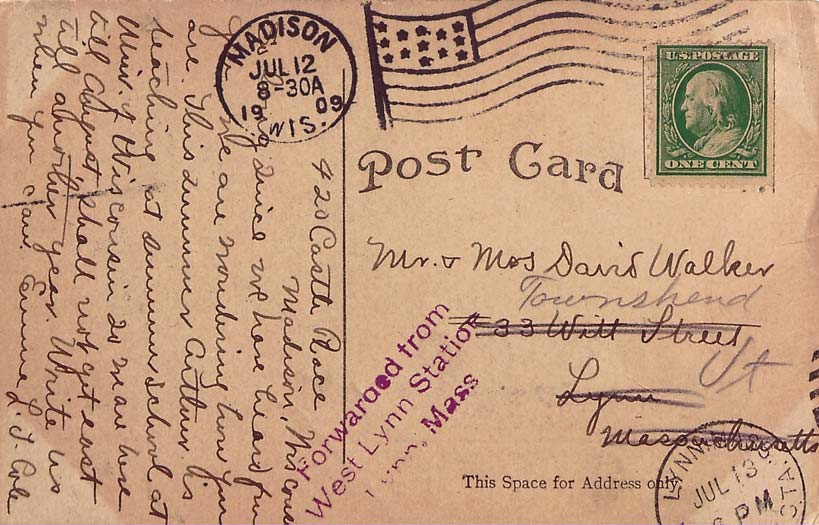 MADISON
JUL 12
8-30A
1909
WIS.
U.S. POSTAGE
ONE CENT
Post Card
420 Castle Place
Madison, Wis
since we have heard from
you We are wondering how you
are. This summer Arthur is
teaching at summer school at
Univ. of Wisconsin so here
till August shall not get east
till another year. Write us
when you can. Emma L. J. Cole
Mr. & Mrs David Walker
Townshend
33 Witt Street
Vt
Lynn
Massachusetts
Forwarded from
West Lynn Station
Lynn, Mass
This Space for Address only.
LYNN MASS.
JUL 13
PM
STA.